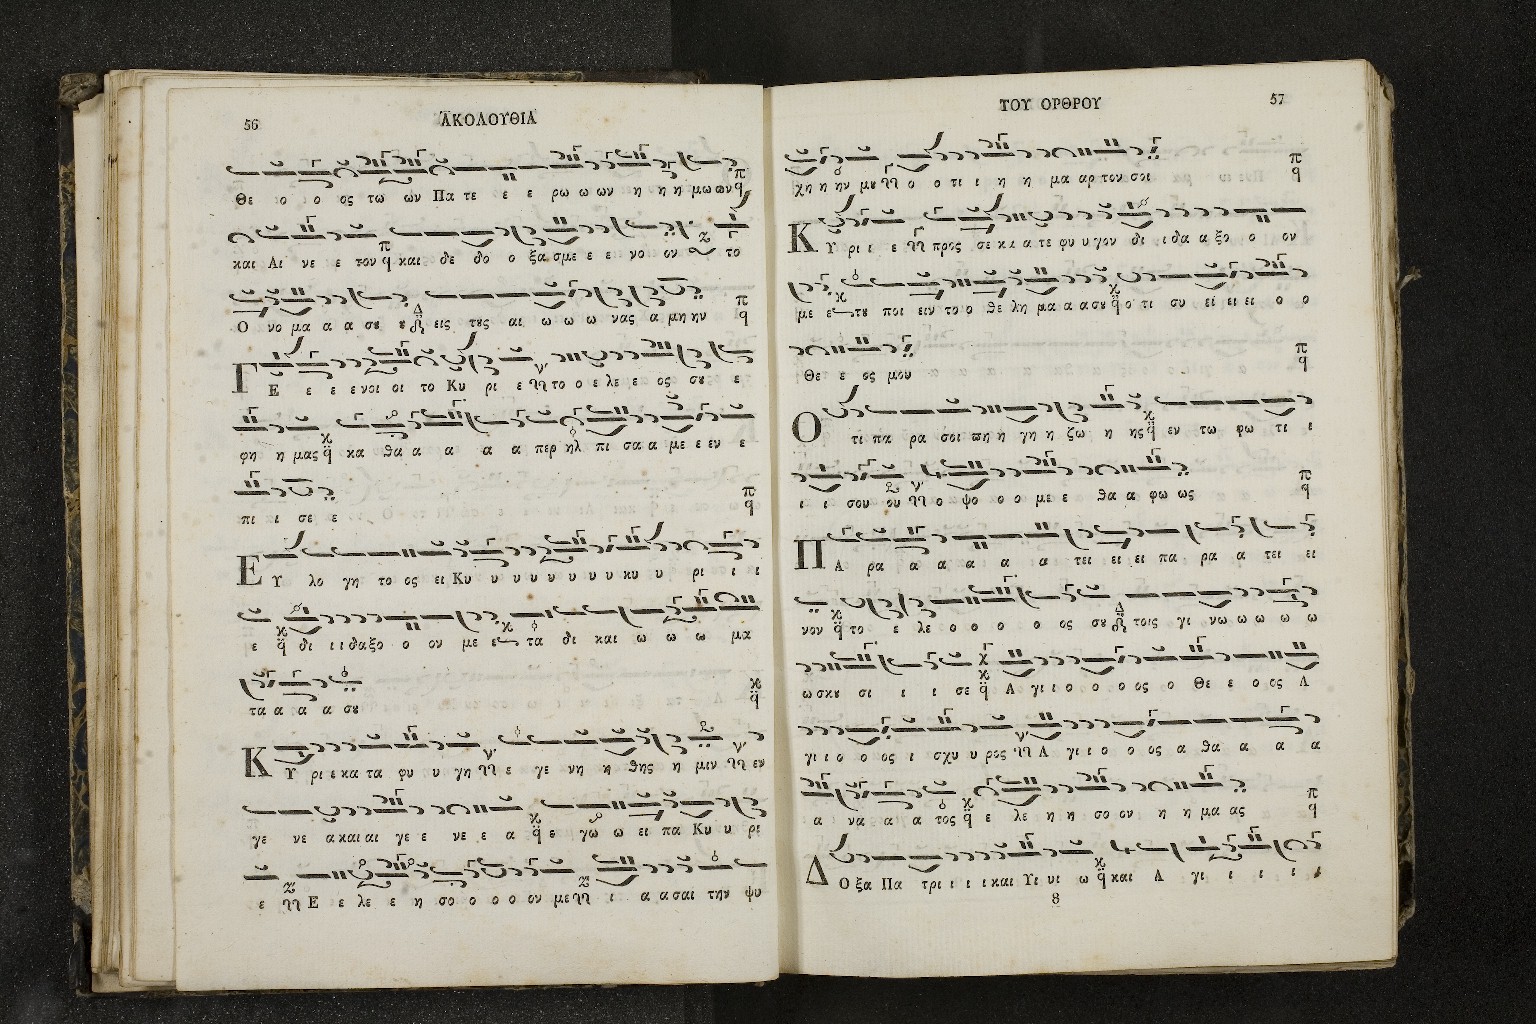 56 ΑΚΟΛΟΥΘΙΑ
Θε ο ο ος τω ων Πα τε ε ε ρω ω ων η η η μω ων
και Αι νε ε τον και δε δο ο ξα σμε ε ε νο ον το
Ο νο μα α α σου ου εις τους αι ω ω ω νας α μη ην
ΓΕ ε ε ε νοι οι το Κυ ρι ε το ο ε λε ε ος σου ε
φη η μας κα θα α α α α περ ηλ πι σα α με ε εν ε
πι ι σε ε
ΕΥ λο γη το ος ει Κυ υ υ υ υ υ υ υ κυ υ ρι ι ι
ε δι ι ι δαξο ο ον με ε τα δι και ω ω ω μα
τα α α α σου
ΚΥ ρι ε κα τα φυ υ γη ε γε νη η θης η μιν εν
γε νε α και αι γε ε νε ε α ε γω ω ει πα Κυ υ ρι
ε Ε ε λε ε η σο ο ο ο ον με ι α α σαι την ψυ
ΤΟΥ ΟΡΘΡΟΥ 57
χη η ην μου ο ο τι ι η η μα αρ τον σοι
ΚΥ ρι ι ε προς σε κα α τε φυ υ γον δι ι δα α ξο ο ον
με ε του ποι ειν το ο θε λη μα α α σου ο τι συ ει ει ει ο ο
Θε ε ος μου
Ο τι πα ρα σοι πη η γη η ζω η ης εν τω φω τι ι
ι ι σου ου ο ψο ο ο με ε θα α φω ως
ΠΑ ρα α α α α τει ει ει πα ρα α τει ει
νον το ε λε ο ο ο ο ος σου τοις γι νω ω ω ω
ωσκου σι ι ι σε Α γι ι ο ο ο ος ο Θε ε ο ος Α
γι ι ο ο ος ι σχυ υ ρος Α γι ι ο ο ος α θα α α α
α να α α τος ε λε η η σο ον η η μα ας
ΔΟ ξα Πα τρι ι ι ι και Υι υι ω και Α γι ι ι ι
8